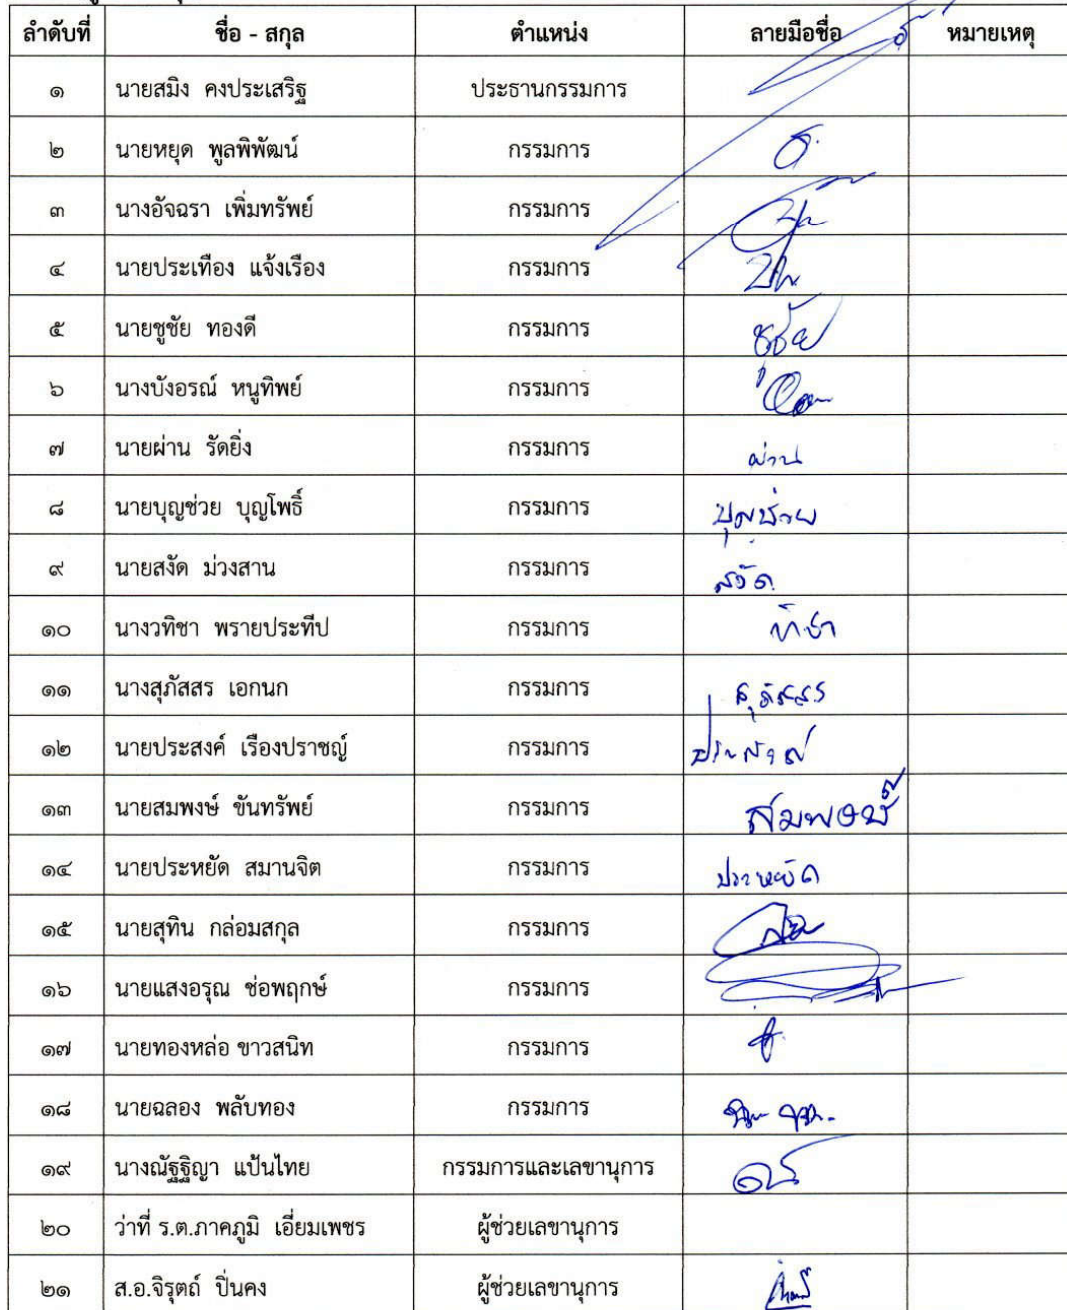 ลำดับที่ ชื่อ - สกุล ตำแหน่ง ลายมือชื่อ หมายเหตุ
๑ นายสมิง คงประเสริฐ ประธานกรรมการ
๒ นายหยุด พูลพิพัฒน์ กรรมการ
๓ นางอัจฉรา เพิ่มทรัพย์ กรรมการ
๔ นายประเทือง แจ้งเรือง กรรมการ
๕ นายชูชัย ทองดี กรรมการ ชูชัย
๖ นางบังอรณ์ หนูทิพย์ กรรมการ
๗ นายผ่าน รัดยิ่ง กรรมการ ผ่าน
๘ นายบุญช่วย บุญโพธิ์ กรรมการ บุญช่วย
๙ นายสงัด ม่วงสาน กรรมการ สงัด
๑๐ นางวทิชา พรายประทีป กรรมการ
๑๑ นางสุภัสสร เอกนก กรรมการ สุภัสสร
๑๒ นายประสงค์ เรืองปราชญ์ กรรมการ ประสงค์
๑๓ นายสมพงษ์ ขันทรัพย์ กรรมการ สมพงษ์
๑๔ นายประหยัด สมานจิต กรรมการ ประหยัด
๑๕ นายสุทิน กล่อมสกุล กรรมการ
๑๖ นายแสงอรุณ ช่อพฤกษ์ กรรมการ
๑๗ นายทองหล่อ ขาวสนิท กรรมการ
๑๘ นายฉลอง พลับทอง กรรมการ
๑๙ นางณัฐฐิญา แป้นไทย กรรมการและเลขานุการ
๒๐ ว่าที่ ร.ต.ภาคภูมิ เอี่ยมเพชร ผู้ช่วยเลขานุการ
๒๑ ส.อ.จิรุตถ์ ปิ่นคง ผู้ช่วยเลขานุการ